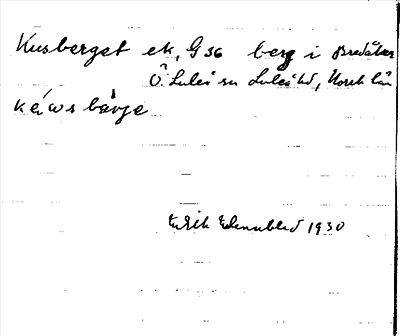 Kusberget ek, G 36 berg i Bredåker
Ö. Luleå sn Luleå td, Norrb län
kéws bàrje
Erik Elenblad 1930